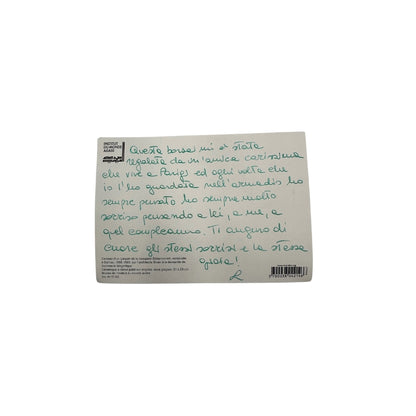 INSTITUT
DU MONDE
ARABE
Questa borsa mi è stata
regalata da un'amica carissima
che vive a Parigi ed ogni volta che
io l'ho guardata nell'armadio ho
sempre pensato ho sempre molto
sorriso pensando a lei, a me, a
quel compleanno. Ti auguro di
cuore gli stessi sorrisi e la stessa
gioia!
L